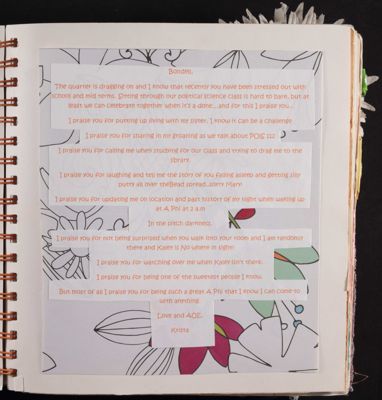 Bondini,
The quarter is dragging on and I know that recently you have been stressed out with
school and mid terms. Sitting through our political science class is hard to bare, but at
least we can celebrate together when it's a done... and for this I praise you...
I praise you for putting up living with my sister, I know it can be a challenge
I praise you for sharing in my groaning as we talk about POIS 112
I praise you for calling me when studying for our class and trying to drag me to the
library.
I praise you for laughing and tell me the story of you falling asleep and getting silly
putty all over the bead spread...
I praise you for updating me on location and past history of my night when waking up
at A Phi at 2 a.m
In the pitch darkness.
I praise you for not being surprised when you walk into your room and I am randomly
there and Katey is No where in sight!
I praise you for watching over me when Katey isn't there.
I praise you for being one of the sweetest people I know.
But most of all I praise you for being such a great A Phi that I know I can come to
with anything
Love and AOE,
Krista